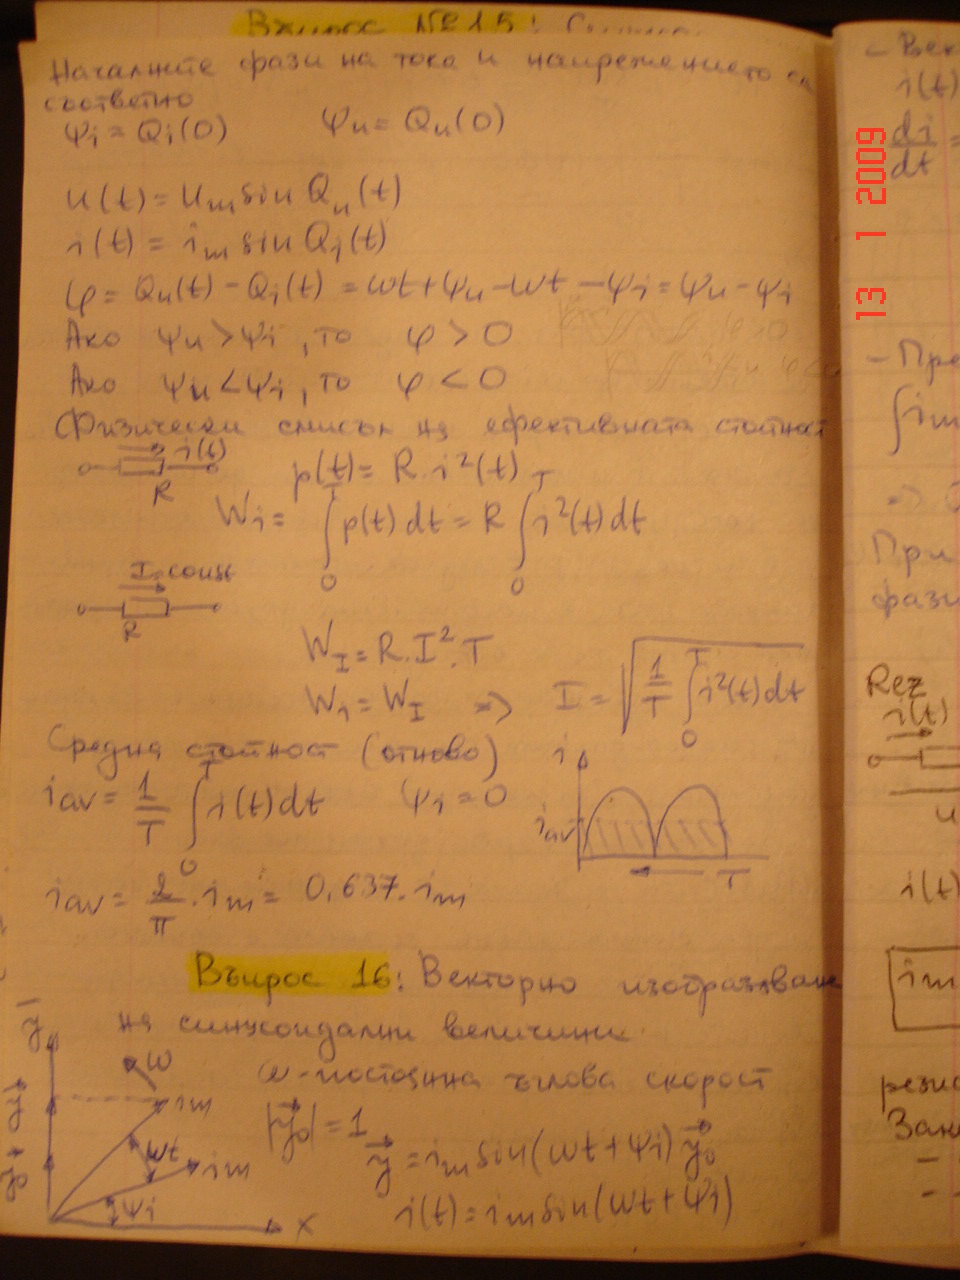 Въпрос №15:
Началните фази на тока и напрежението са
съответно
ψi = Qi(0)   ψu = Qu(0)
u(t) = Um sin Qu(t)
i(t) = im sin Qi(t)
φ = Qu(t) - Qi(t) = ωt + ψu - ωt - ψi = ψu - ψi
Ако ψu > ψi, то φ > 0
Ако ψu < ψi, то φ < 0
Физически смисъл на ефективната стойност
i(t)
R
p(t) = R.i²(t)
Wi = ∫₀ᵀ p(t) dt = R ∫₀ᵀ i²(t) dt
I=const
R
W_I = R.I².T
Wi = W_I => I = √(1/T ∫₀ᵀ i²(t) dt)
Средна стойност (отново)
iav = 1/T ∫₀ᵀ i(t) dt   ψi = 0
i
iav
T
iav = 2/π . im = 0,637. im
Въпрос 16: Векторно изобразяване
на синусоидални величини.
ω - постоянна ъглова скорост
|y₀| = 1
y = im sin(ωt + ψi) y₀
i(t) = im sin(ωt + ψi)
y
ω
im
ωt
im
ψi
x
y₀
y
13 1 2009
i(t)
di
dt
∫im
При
фази
Rez
i(t)
u
i(t)
im